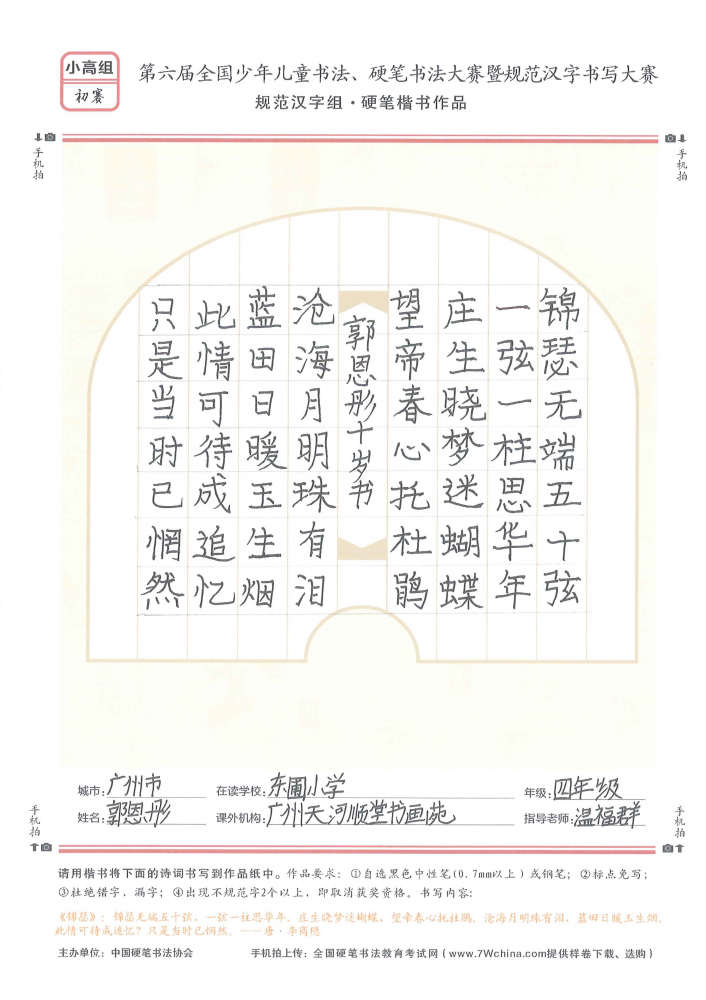 小高组
初赛
第六届全国少年儿童书法、硬笔书法大赛暨规范汉字书写大赛
规范汉字组·硬笔楷书作品
手机拍
手机拍
锦瑟无端五十弦
一弦一柱思华年
庄生晓梦迷蝴蝶
望帝春心托杜鹃
郭恩彤十岁书
沧海月明珠有泪
蓝田日暖玉生烟
此情可待成追忆
只是当时已惘然
城市:广州市 在读学校:东圃小学 年级:四年级
姓名:郭恩彤 课外机构:广州天河顺堂书画苑 指导老师:温福群
手机拍
手机拍
请用楷书将下面的诗词书写到作品纸中。作品要求:①自选黑色中性笔(0.7mm以上)或钢笔;②标点免写;
③杜绝错字、漏字;④出现不规范字2个以上,即取消获奖资格。书写内容:
《锦瑟》:锦瑟无端五十弦,一弦一柱思华年。庄生晓梦迷蝴蝶,望帝春心托杜鹃。沧海月明珠有泪,蓝田日暖玉生烟。
此情可待成追忆?只是当时已惘然。——唐·李商隐
主办单位:中国硬笔书法协会 手机拍上传:全国硬笔书法教育考试网(www.7Wchina.com提供样卷下载、选购)